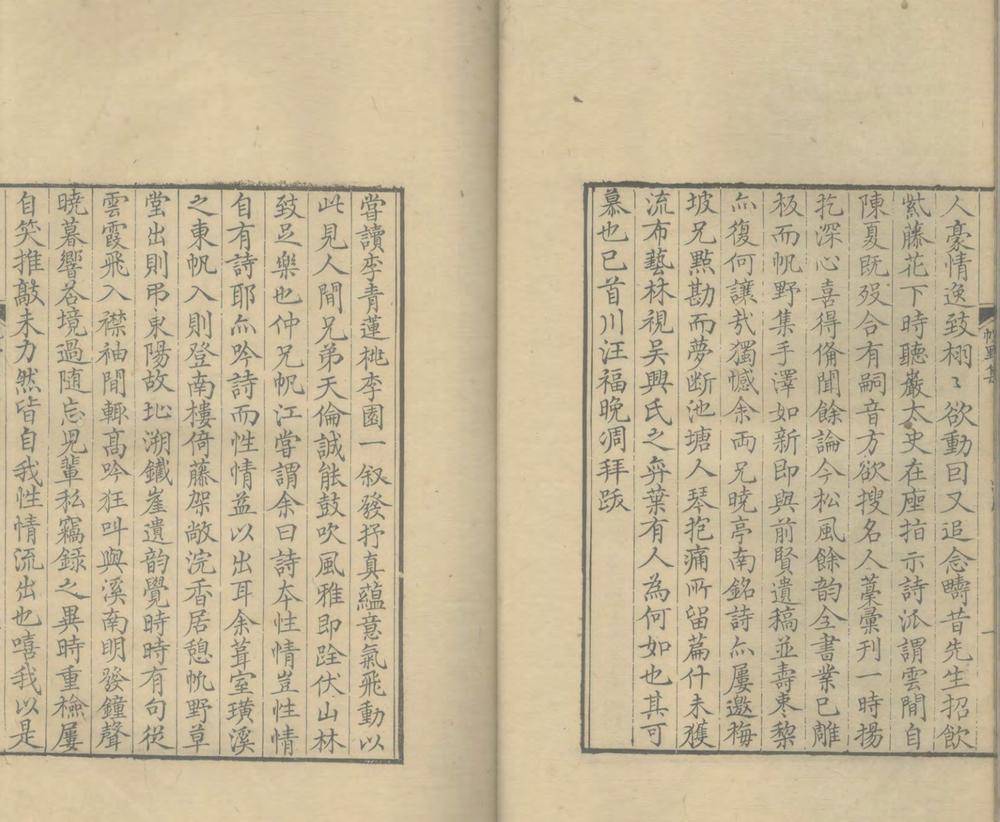 人豪情逸致栩〻欲動曰又追念疇昔先生招飲
紫藤花下時聽巖太史在座拍示詩派謂雲間自
陳夏既歿合有嗣音方欲搜名人藁彙刊一時揚
扢深心喜得俻聞餘論今松風餘韵全書業已雕
板而帆野集手澤如新即與前賢遺稿並壽東棃
亦復何讓㢤獨憾余两兄曉亭南銘詩亦屢邀梅
坡兄㸃勘而夢断池塘人琴抱痛所留篇什未獲
流布藝林視吴興氏之弈葉有人為何如也其可
慕也已首川汪福晚凋拜跋
帆野集
嘗讀李青蓮桃李園一叙發抒真蘊意氣飛動以
此見人間兄弟天倫誠能鼓吹風雅即跧伏山林
致足樂也仲兄帆江嘗謂余曰詩本性情豈性情
自有詩耶亦吟詩而性情益以出耳余葺室璜溪
之東帆入則登南樓倚藤架敞浣香居憩帆野草
堂出則弔東陽故址溯鐵崖遺韵覺時時有句從
雲霞飛入襟袖間輙高吟狂叫與溪南明發鐘聲
曉暮響荅境過随忘児輩私竊録之異時重檢屢
自笑推敲未力然皆自我性情流出也嘻我以是